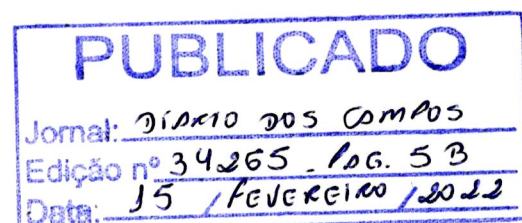 PUBLICADO
Jornal: DIÁRIO DOS CAMPOS
Edição nº 34265 - PAG. 5B
Data: 15 / FEVEREIRO / 2022